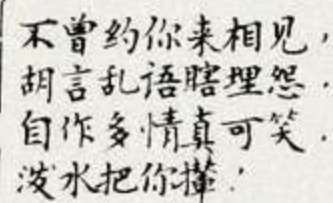 不曾约你来相见，
胡言乱语瞎埋怨．
自作多情真可笑．
泼水把你撵！